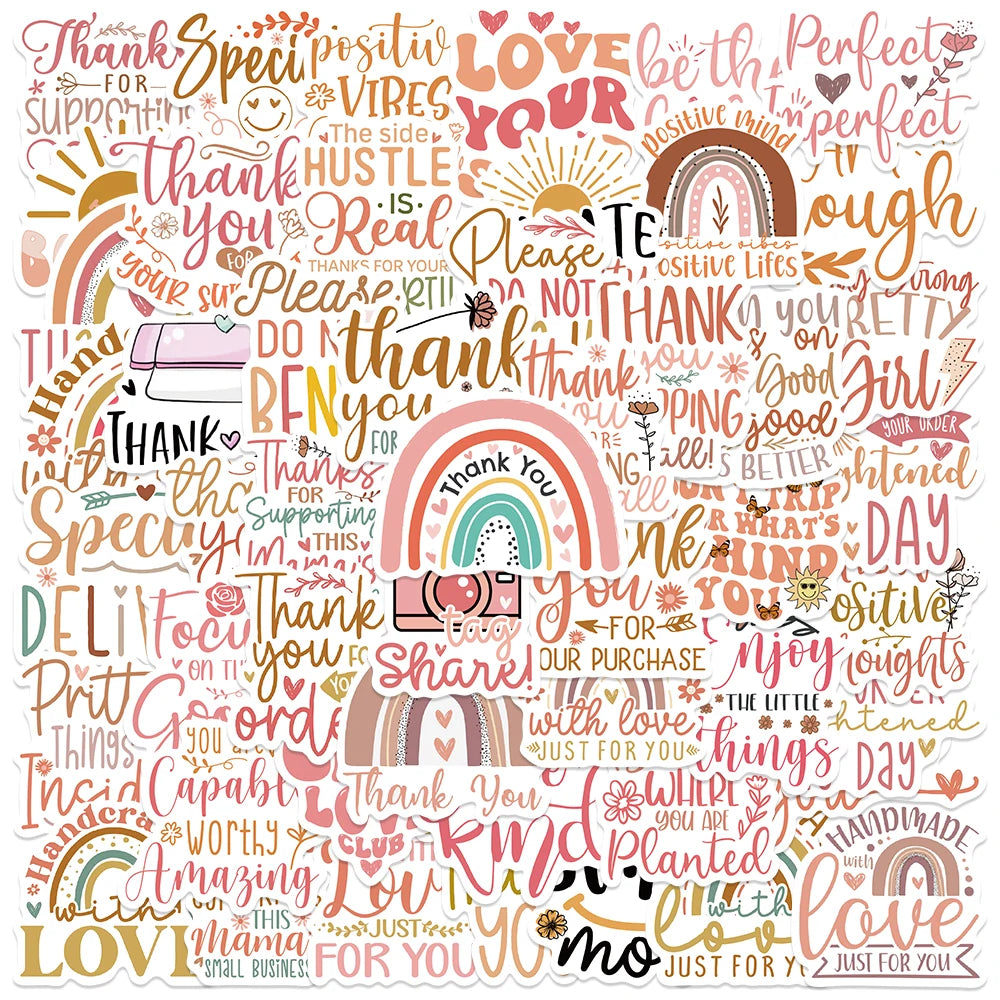 Thank
FOR
Supporting
Speci
positiv
VIBES
LOVE
YOUR
be th
Perfect
Imperfect
thank
you
FOR
your su
The side
HUSTLE
IS
Real
THANKS FOR YOUR
Please
positive mind
positive vibes
positive Lifes
ough
Please
DO N
BEN
DO NOT
thank
you
FOR
THANK
you
PPING
all!
Thank
you
n you
on
Good
good
is BETTER
Strong
RETTY
Girl
YOUR ORDER
Hand
with
THANK
Speci
tha
Thanks
FOR
Supporting
THIS
mama
Thank You
ghtened
DAY
WHAT'S
MIND
YOU
DELIV
Focu
ON TH
Thank
you
tag
Share!
you
FOR
OUR PURCHASE
ositive
houghts
Enjoy
THE LITTLE
things
Pritt
Things
Go
you a
orde
with love
JUST FOR YOU
ghtened
Day
Incid
Capabl
worthy
Amazing
Thank You
CLUB
kind
WHERE
YOU ARE
Planted
Handcra
with
LOVE
THIS
Mama
SMALL BUSINESS
Lov
JUST
FOR YOU
mo
with
lov
JUST FOR Y
HANDMADE
with
love
JUST FOR YOU